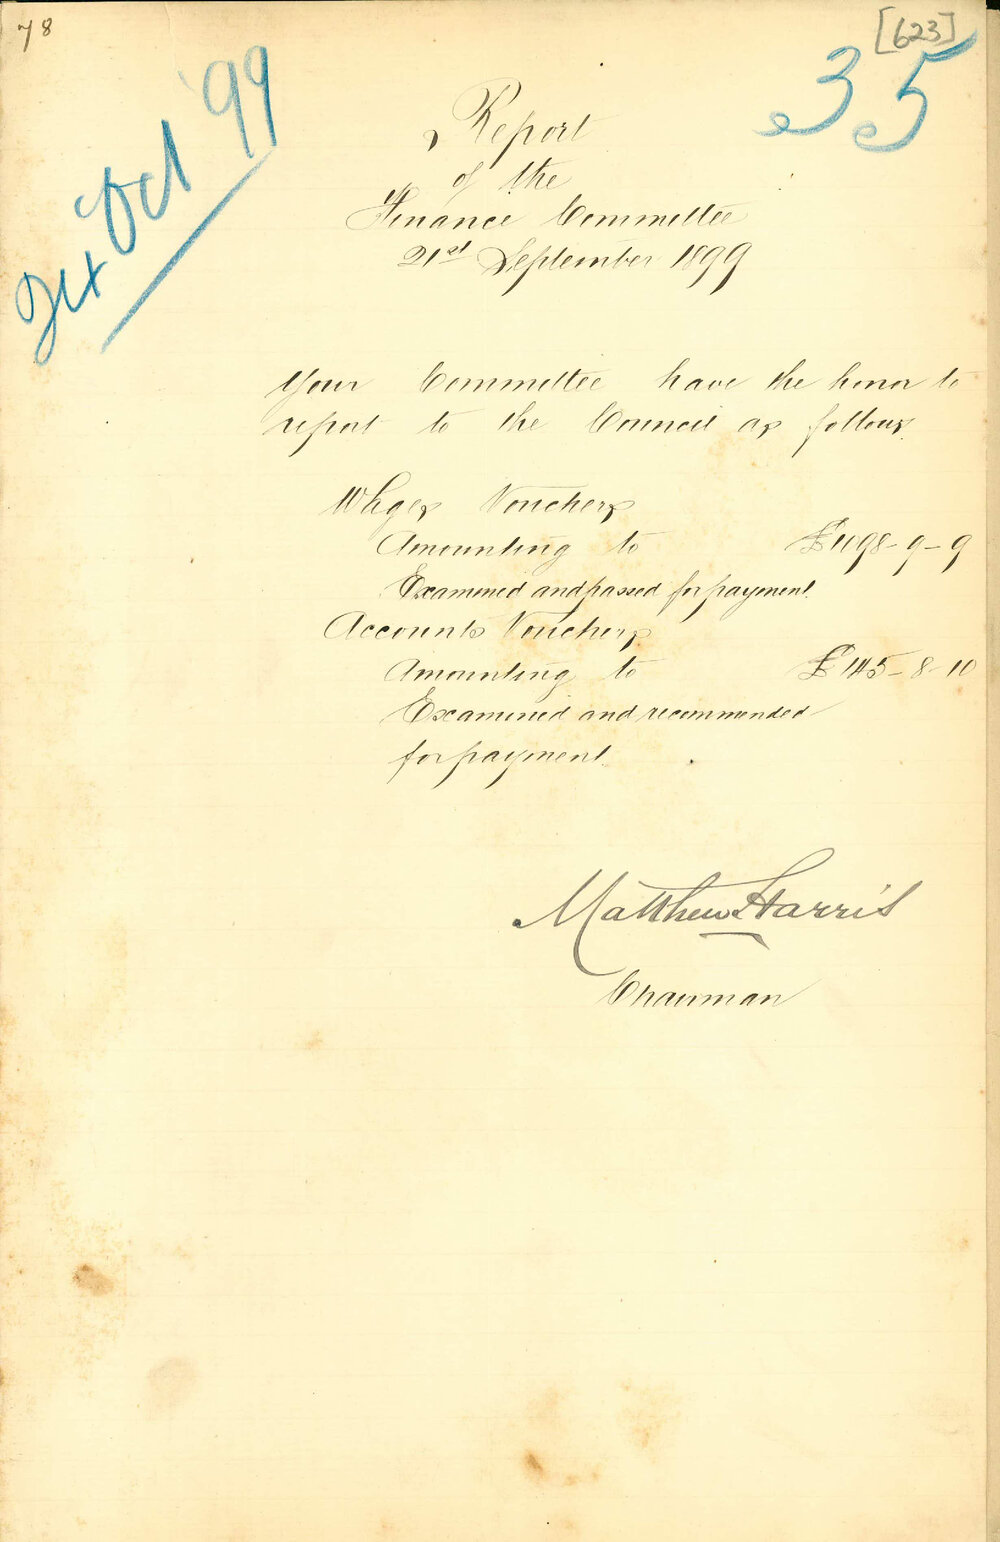 78
[623]
35
Oct '99
Report
of the
Finance Committee
21st September 1899
Your Committee have the honor to
report to the Council as follows.
Wages Vouchers
Amounting to £1198-9-9
Examined and passed for payment.
Accounts Vouchers
Amounting to £145-8-10
Examined and recommended
for payment.
Matthew Harris
Chairman